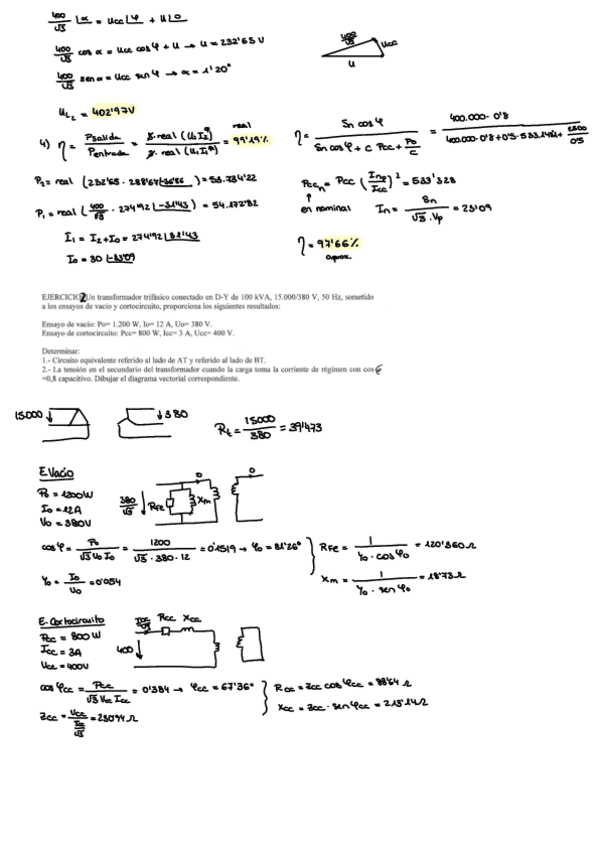 400/√3 |α = Ucc|φ + U|0
400/√3 cos α = Ucc cos φ + U → U = 232'65 V
400/√3 sen α = Ucc sen φ → α = 1'20°
400/√3
Ucc
U
UL2 = 402'97V
4) η = Psalida / Pentrada = 3·real (U2I2*) / 3·real (U1I1*) = 99'19%
real
η = Sn cos φ / (Sn cos φ + C Pcc + Po/C) = 400.000·0'8
P2 = real
P1 = real
Pccn = Pcc (In / Icc)² = 533'328
en nominal
In = Sn / (√3·Vp) = 23'09
I1 = I2 + I0 = 274'92
I0 = 30
η = 97'66%
aprox
EJERCICIO 2 Un transformador trifásico conectado en D-Y de 100 kVA, 15.000/380 V, 50 Hz, sometido
a los ensayos de vacío y cortocircuito, proporciona los siguientes resultados:
Ensayo de vacío: Po= 1.200 W, Io= 12 A, Uo= 380 V.
Ensayo de cortocircuito: Pcc= 800 W, Icc= 3 A, Ucc= 400 V.
Determinar:
1.- Circuito equivalente referido al lado de AT y referido al lado de BT.
2.- La tensión en el secundario del transformador cuando la carga toma la corriente de régimen con cos φ
=0,8 capacitivo. Dibujar el diagrama vectorial correspondiente.
15000
380
Rt = 15000/380 = 39'473
E.Vacio
Po = 1200W
Io = 12A
Vo = 380V
380/√3
RFe
Xm
0
0
cos φ = Po / (√3 Uo Io) = 1200 / (√3·380·12) = 0'1519 → φo = 81'26°
RFe = 1 / (Yo·cos φo) = 120'360 Ω
Yo = Io / Uo = 0'054
Xm = 1 / (Yo·sen φo) = 18'73 Ω
E.Cortocircuito
Pcc = 800 W
Icc = 3A
Ucc = 400V
Rcc Xcc
400
cos φcc = Pcc / (√3 Ucc Icc) = 0'384 → φcc = 67'36°
Rcc = Zcc cos φcc = 88'64 Ω
Xcc = Zcc · sen φcc = 213'14 Ω
Zcc = Ucc / (Icc/√3) = 230'94 Ω